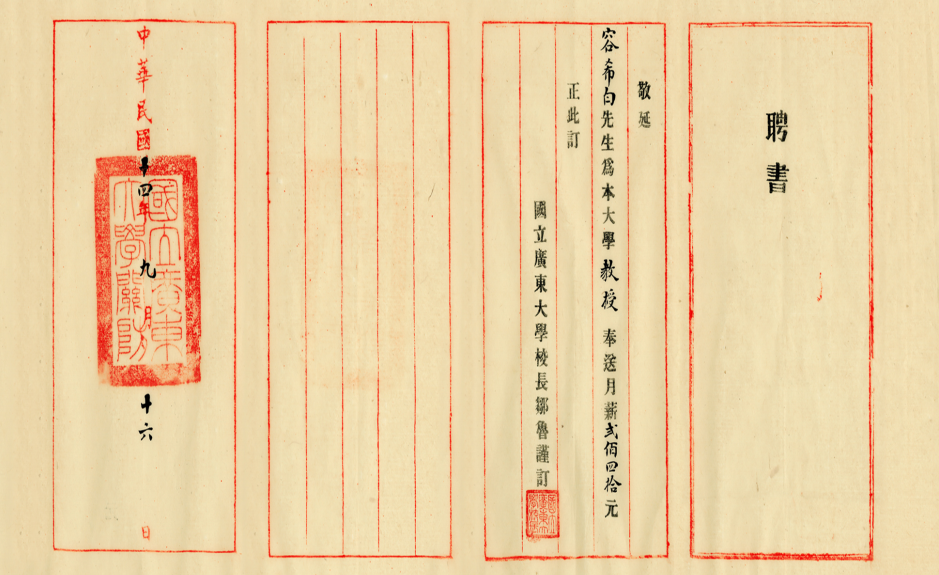 聘書
敬延
容希白先生爲本大學教授奉送月薪弍佰四拾元
正此訂
國立廣東大學校長鄒魯謹訂
中華民國十四年九月十六日
國立廣東
大學關防